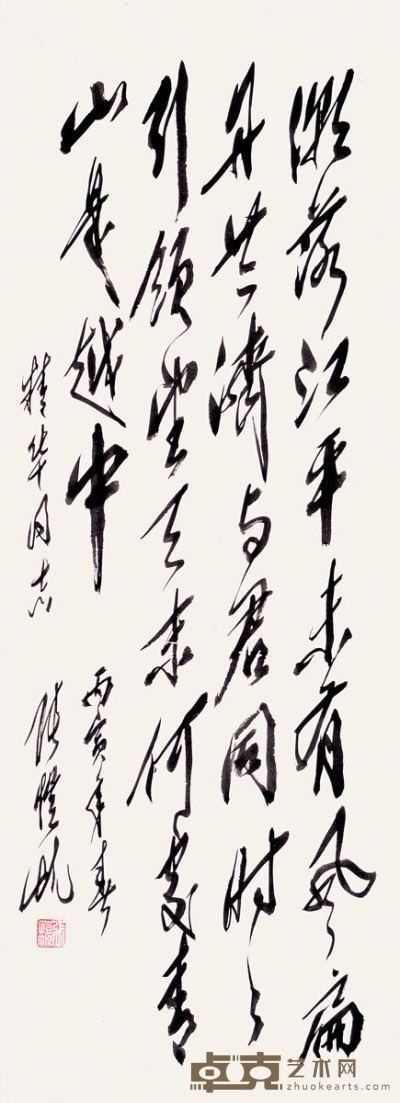 潮落江平未有风扁
舟共濟与君同时々
引領望天末何处青
山是越中
精华同志
丙寅年春
张愷帆
卓克艺术网
zhuokearts.com